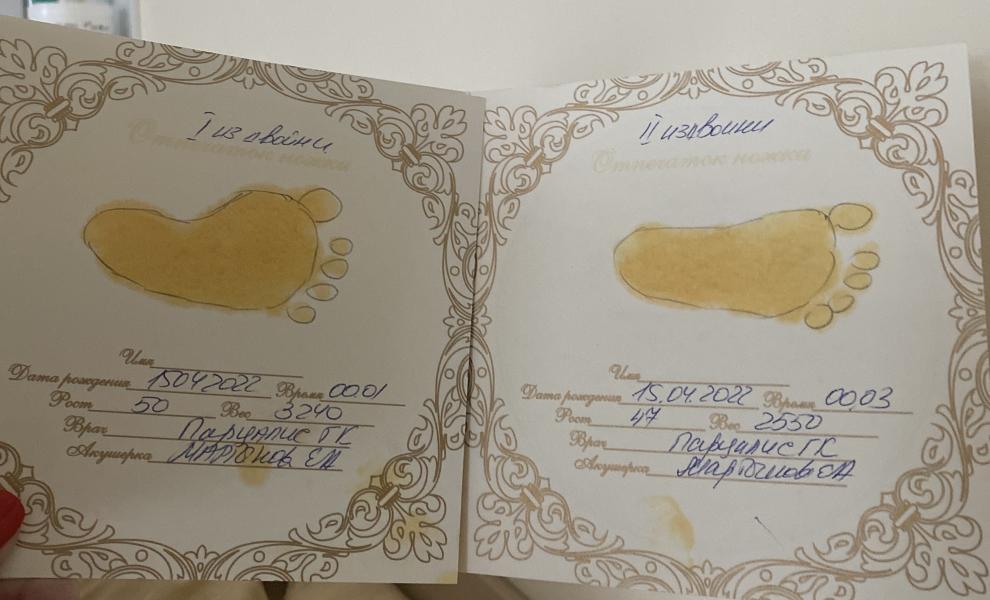 I из двойни
Отпечаток ножки
Имя
Дата рождения 15042022 Время 00.01
Рост 50 Вес 3240
Врач Парцалис ГК
Акушерка
II из двойни
Отпечаток ножки
Имя
Дата рождения 15.04.2022 Время 00.03
Рост 47 Вес 2550
Врач Парцалис ГК
Акушерка